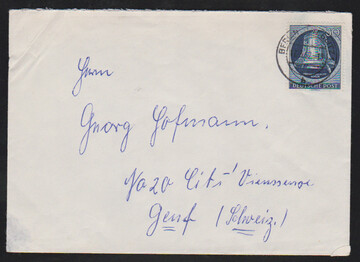 BER
DEUTSCHE POST
Herrn
Georg Hofmann.
No 20 Cité Vieusseux
Genf (Schweiz.)